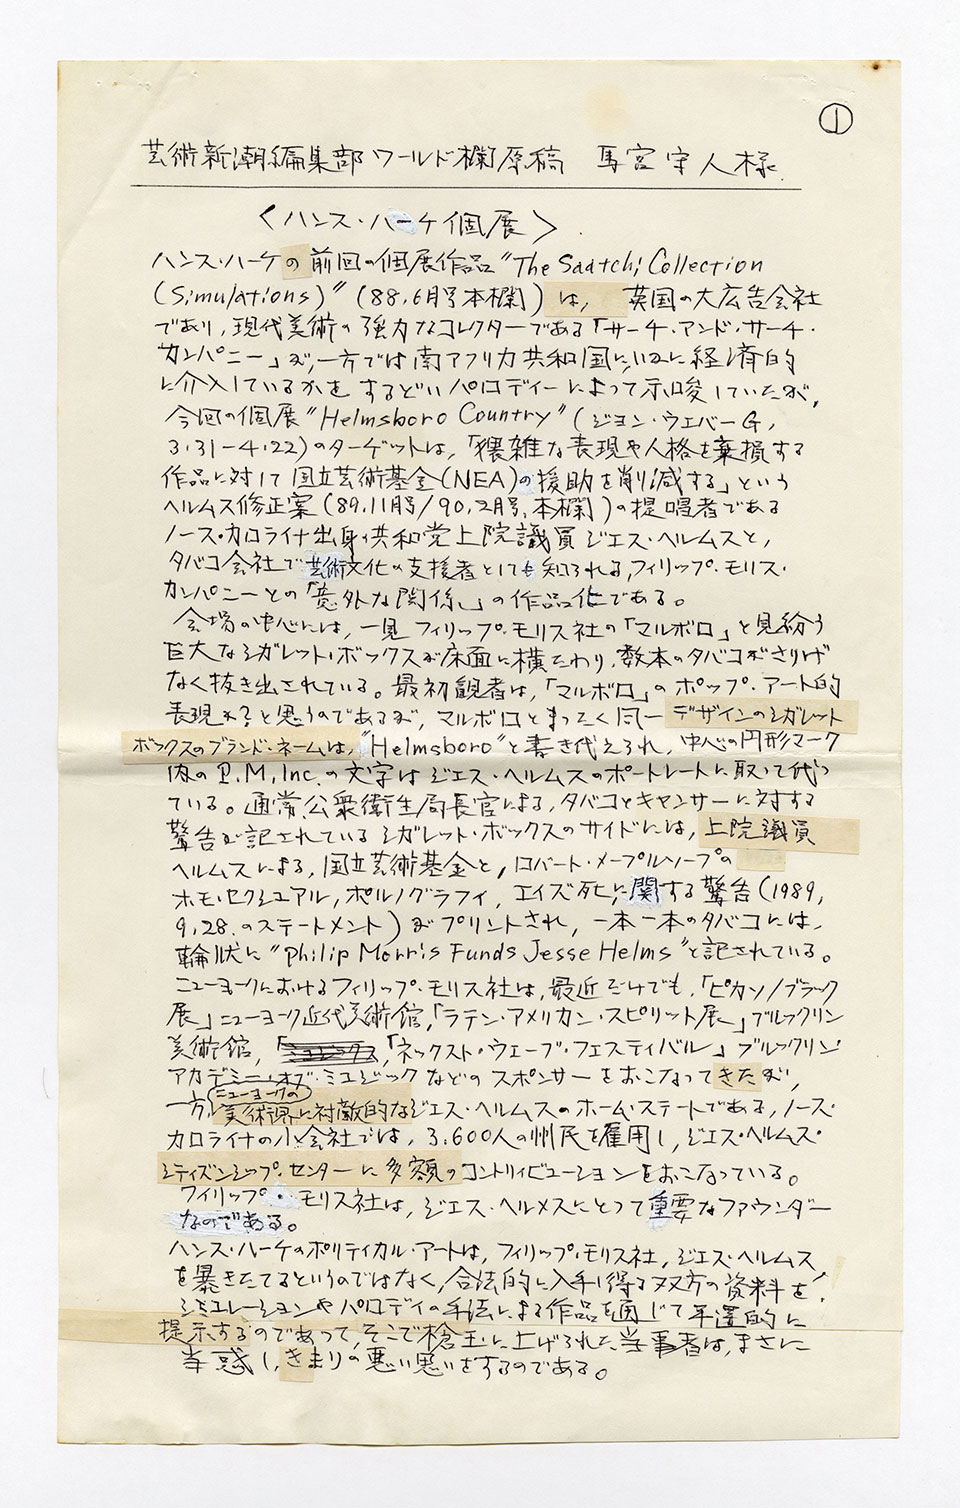 ①
芸術新潮編集部ワールド欄原稿 馬宮守人様
〈ハンス・ハーケ個展〉
ハンス・ハーケの前回の個展作品"The Saatchi Collection
(Simulations)"(88.6月号本欄)は、英国の大広告会社
であり、現代美術の強力なコレクターである「サーチ・アンド・サーチ・
カンパニー」が、一方では南アフリカ共和国にいかに経済的
に介入しているかをするどいパロディーによって示唆していたが、
今回の個展"Helmsboro Country"(ジョン・ウエバーG,
3.31-4.22)のターゲットは、「猥雑な表現や人格を棄損する
作品に対して国立芸術基金(NEA)の援助を削減する」という
ヘルムス修正案(89.11月号/90.2月号、本欄)の提唱者である
ノース・カロライナ出身の共和党上院議員ジェス・ヘルムスと,
タバコ会社で芸術文化の支援者としても知られる,フィリップ・モリス・
カンパニーとの「意外な関係」の作品化である。
会場の中心には、一見フィリップ・モリス社の「マルボロ」と見紛う
巨大なシガレット・ボックスが床面に横たわり、数本のタバコがさりげ
なく抜き出されている。最初観者は、「マルボロ」のポップ・アート的
表現か?と思うのであるが、マルボロとまったく同一デザインのシガレット
ボックスのブランド・ネームは、"Helmsboro"と書き代えられ、中心の円形マーク
内のP.M,Inc.の文字はジェス・ヘルムスのポートレートに取って代っ
ている。通常、公衆衛生局長官による,タバコとキャンサーに対する
警告が記されているシガレット・ボックスのサイドには,上院議員
ヘルムスによる,国立芸術基金と,ロバート・メープルソープの
ホモ・セクシュアル,ポルノグラフィ,エイズ死に関する警告(1989,
9,28.のステートメント)がプリントされ,一本一本のタバコには,
輪状に"Philip Morris Funds Jesse Helms"と記されている。
ニューヨークにおけるフィリップ・モリス社は,最近だけでも,「ピカソ/ブラック
展」ニューヨーク近代美術館,「ラテン・アメリカン・スピリット展」ブルックリン
美術館,「ネックスト・ウェーブ・フェスティバル」ブルックリン
アカデミー・オブ・ミュジックなどのスポンサーをおこなってきたが,
一方,ニューヨークの美術界に対敵的なジェス・ヘルムスのホーム・ステートである,ノース・
カロライナの小会社では,3.600人の州民を雇用し,ジェス・ヘルムス・
シティズンシップ・センターに多額のコントリィビューションをおこなっている。
フィリップ・モリス社は,ジェス・ヘルメスにとって重要なファウンダー
なのである。
ハンス・ハーケのポリティカル・アートは,フィリップ・モリス社,ジェス・ヘルムス
を暴きたてるというのではなく,合法的に入手し得る双方の資料を,
シミュレーションやパロディの手法による作品を通じて
提示するのであって,そこで槍玉に上げられた当事者は,まさに
当惑し,きまりの悪い思いをするのである。